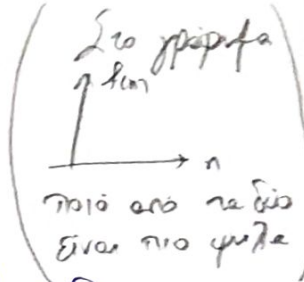 Στο γράφημα
f(n)
n
ποιό από τα δύο
είναι πιο ψηλά